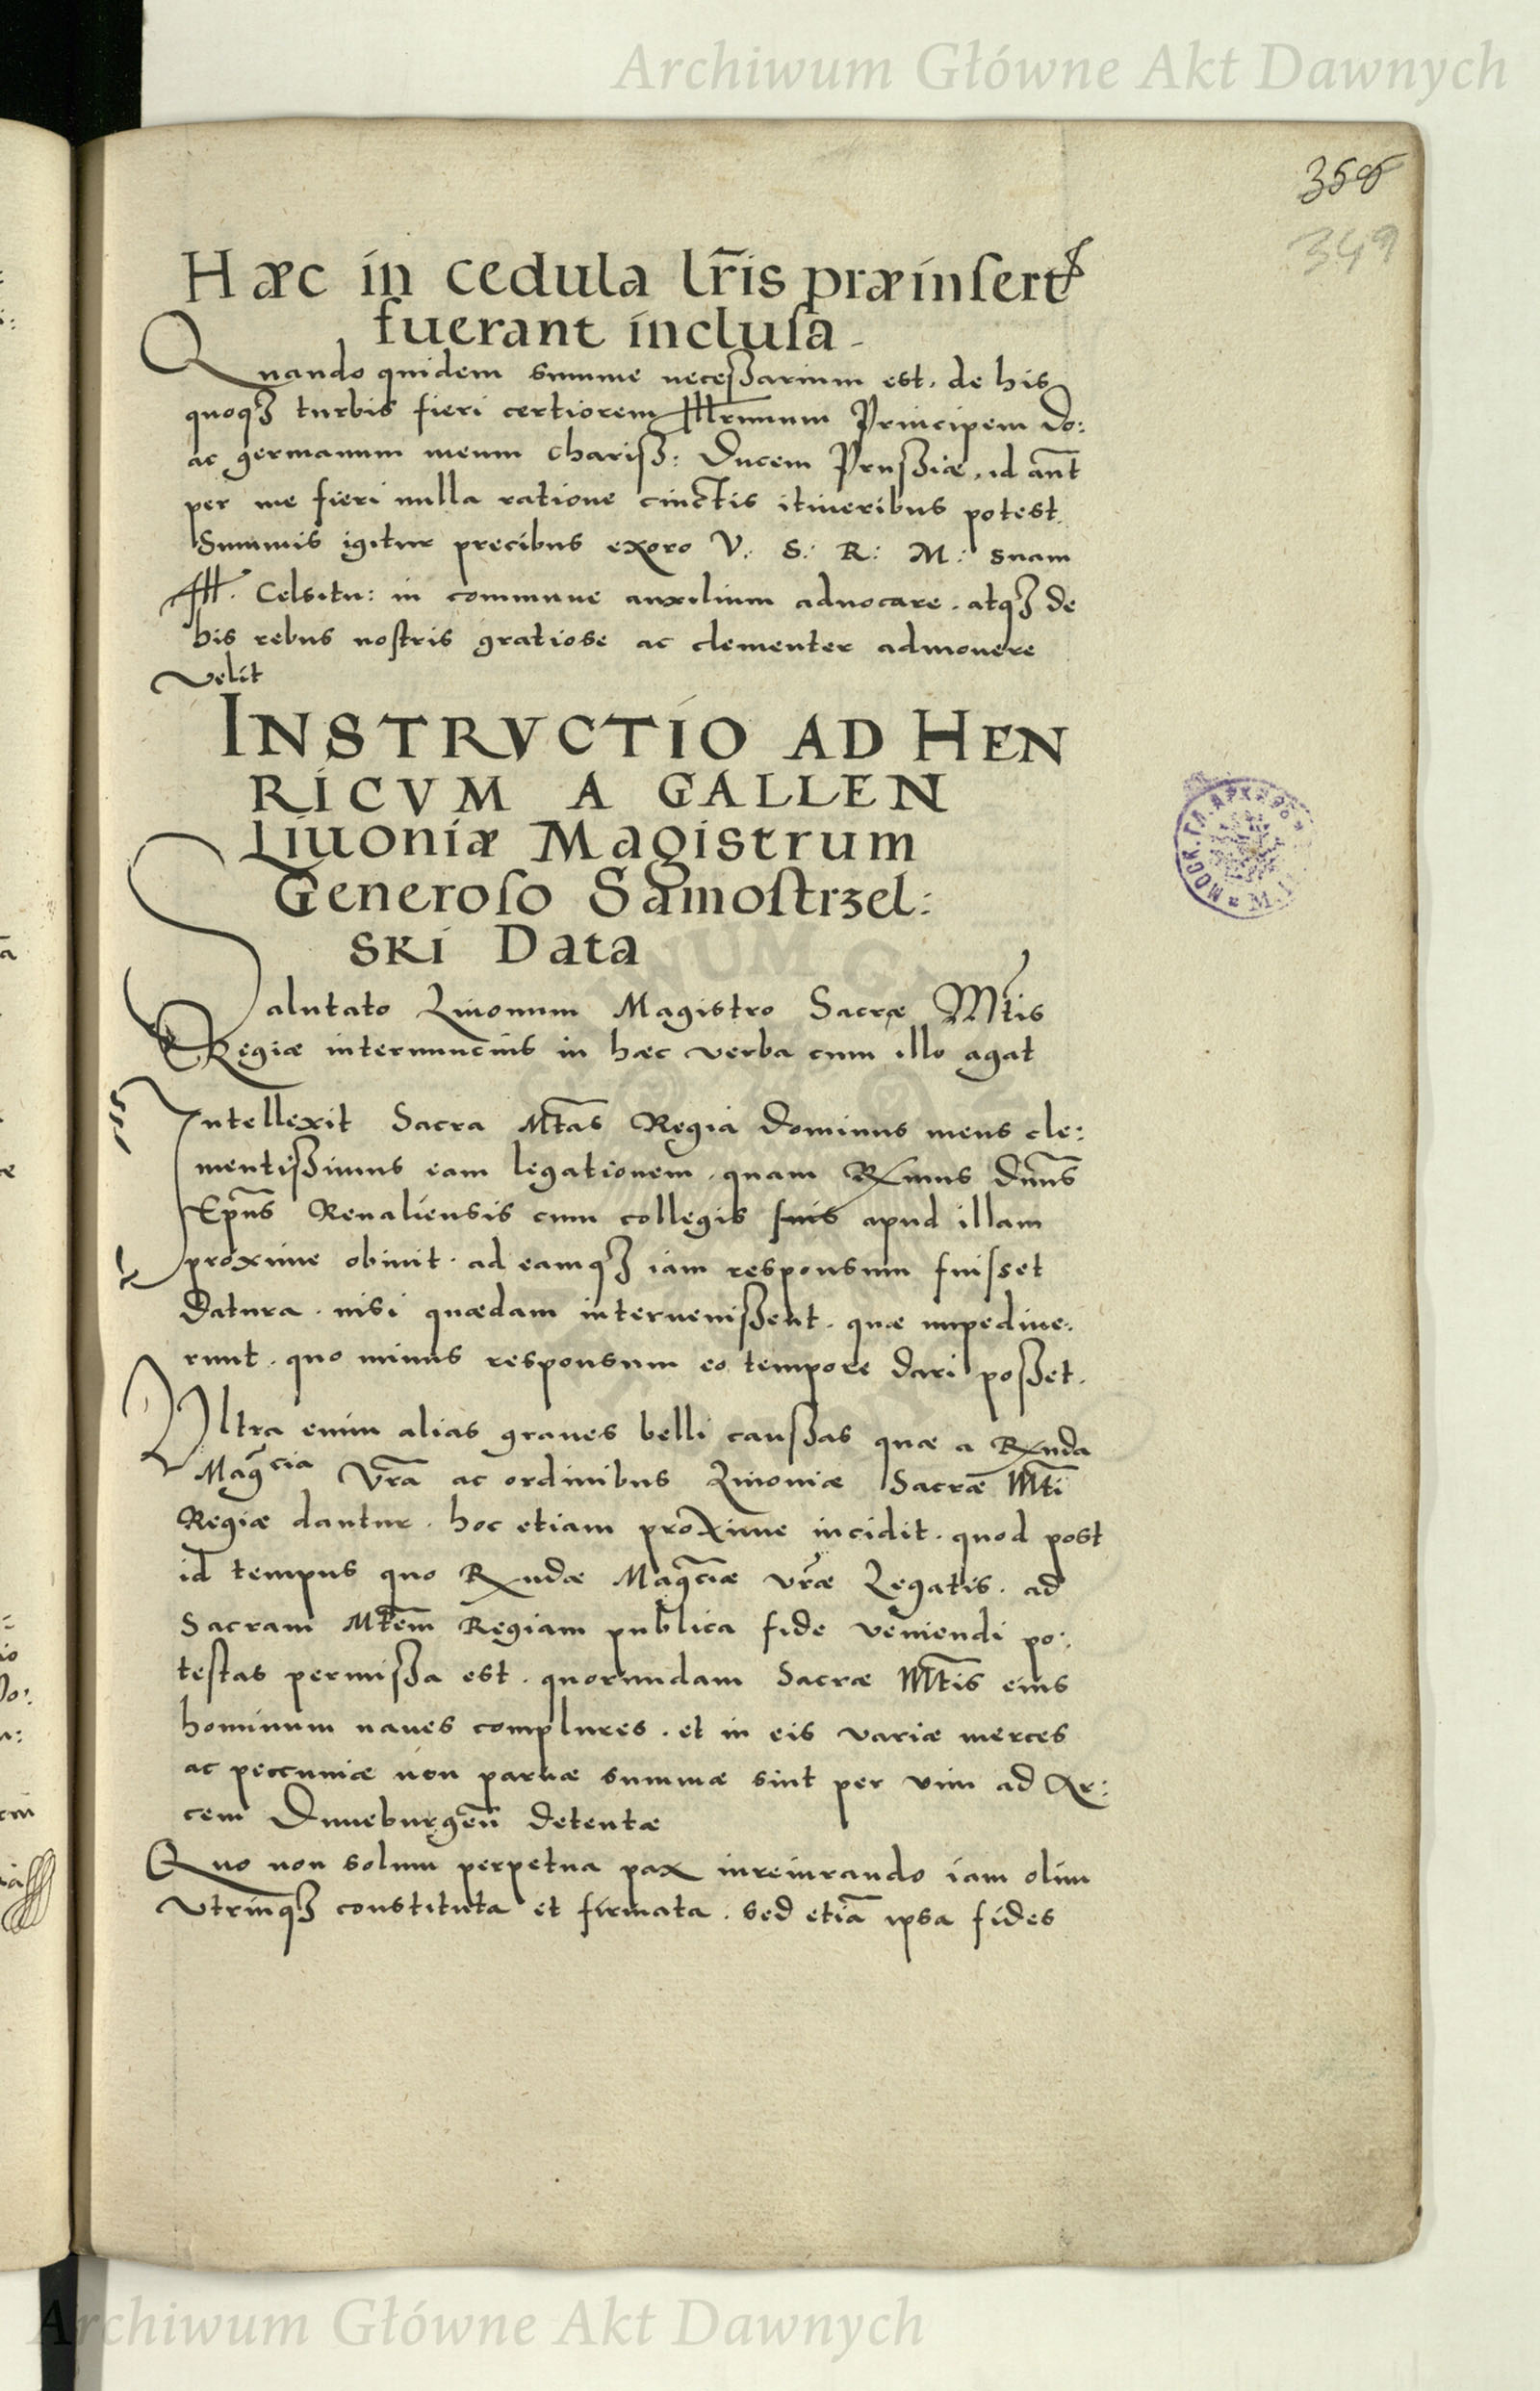 Archiwum Główne Akt Dawnych
349
Hæc in cedula lr̃is præinsert
fuerant inclusa.
Quando quidem summe necessarium est, de his
quoq₃ turbis fieri certiorem Illr̃imum Principem Do:
ac germanum meum chariss: Ducem Prussiæ, id aũt
per me fieri nulla ratione cinctis itineribus potest.
Summis igitur precibus exoro V: S: R: M: suam
Ill. Celsitu: in commune auxilium aduocare, atq₃ de
his rebus nostris gratiose ac clementer admonere
velit
INSTRVCTIO AD HEN
RICVM A GALLEN
Liuoniæ Magistrum
Generoso Samostrzel:
ski Data
Salutato Liuonum Magistro Sacræ Mt̃is
Regiæ internuncius in hæc verba cum illo agat
Intellexit Sacra Mt̃as Regia Dominus meus cle:
mentissimus eam legationem, quam Rx̃imus Dñus
Ep̃us Reualiensis cum collegis suis apud illam
proxime obiuit. ad eamq₃ iam responsum fuisset
Datura. nisi quædam interuenissent. quæ impediue:
runt. quo minus responsum eo tempore dari posset.
Vltra enim alias graues belli caussas quæ a Rx̃nda
Mag̃cia Vr̃a ac ordinibus Liuoniæ Sacræ Mt̃i
Regiæ dantur. hoc etiam proxime incidit. quod post
id tempus quo Rx̃ndæ Mag̃ciæ vr̃æ Legatis. ad
Sacram Mt̃em Regiam publica fide veniendi po:
testas permissa est. quorundam Sacræ Mt̃is eius
hominum naues complures. et in eis variæ merces
ac peccuniæ non paruæ summæ sint per vim ad Ar:
cem Duneburgeñ detentæ
Quo non solum perpetua pax iureiurando iam olim
vtrinq₃ constituta et firmata. sed etiã ipsa fides
Archiwum Główne Akt Dawnych